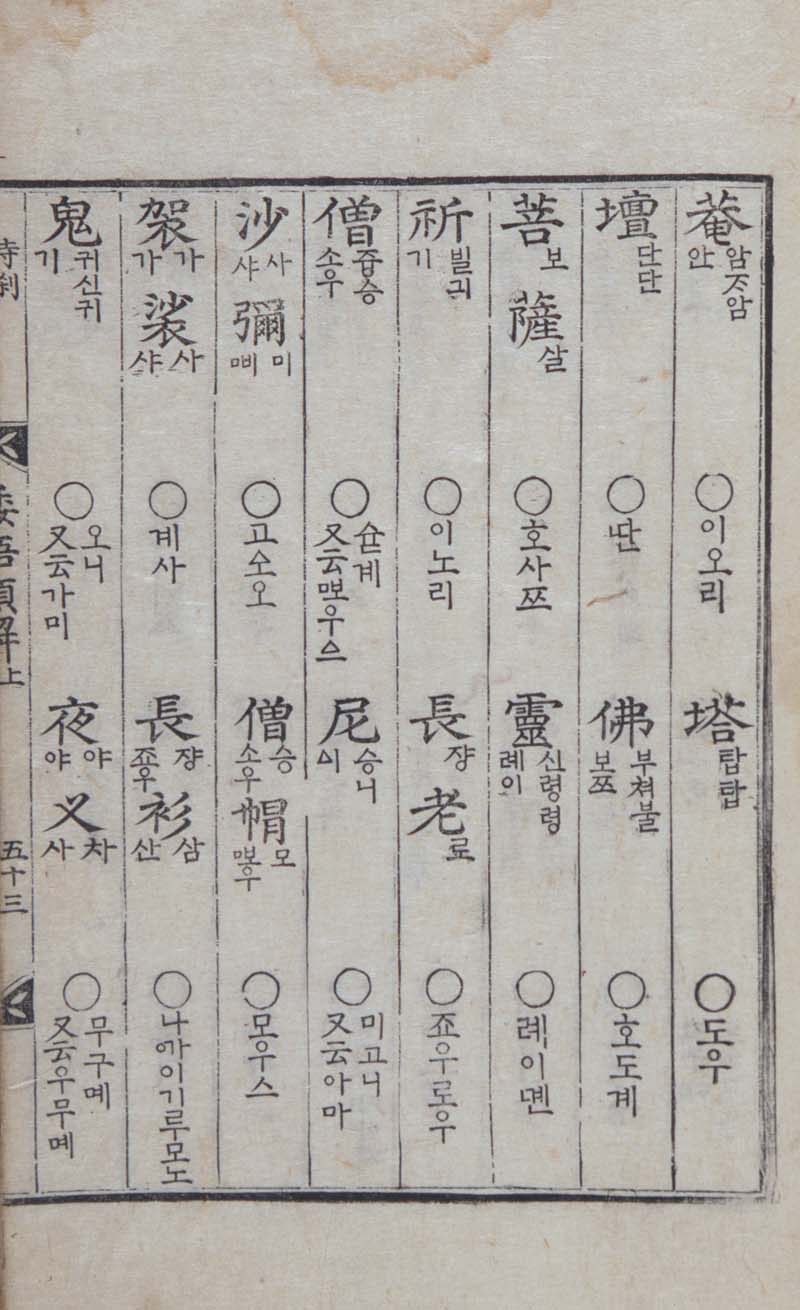 菴 암ᄌᆞ암 안 ○ 이오리 塔 탑탑 ○ 도우
壇 단단 ○ 딴 佛 부쳐불 보쯔 ○ 호도계
菩 보 薩 살 ○ 호사쯔 靈 신령령 례이 ○ 례이
祈 빌긔 기 ○ 이노리 長 쟝 老 로 ○ 죠우로우
僧 즁승 소우 ○ 슌계 又云ᄜᅩ우ᅀᅳ 尼 승니 ○ 미고니 又云아마
沙 사 샤 彌 미 ᄜᅵ ○ 고소오 僧 승 소우 帽 모 ᄜᅩ우 ○ 모우스
袈 가 가 裟 사 샤 ○ 계사 長 쟝 죠우 衫 삼 산 ○ 나ᅁᅡ이기루모노
鬼 귀신귀 기 ○ 오니 又云가미 夜 야 야 叉 차 사 ○ 무구몌 又云우무몌
寺刹 倭語類解上 五十三